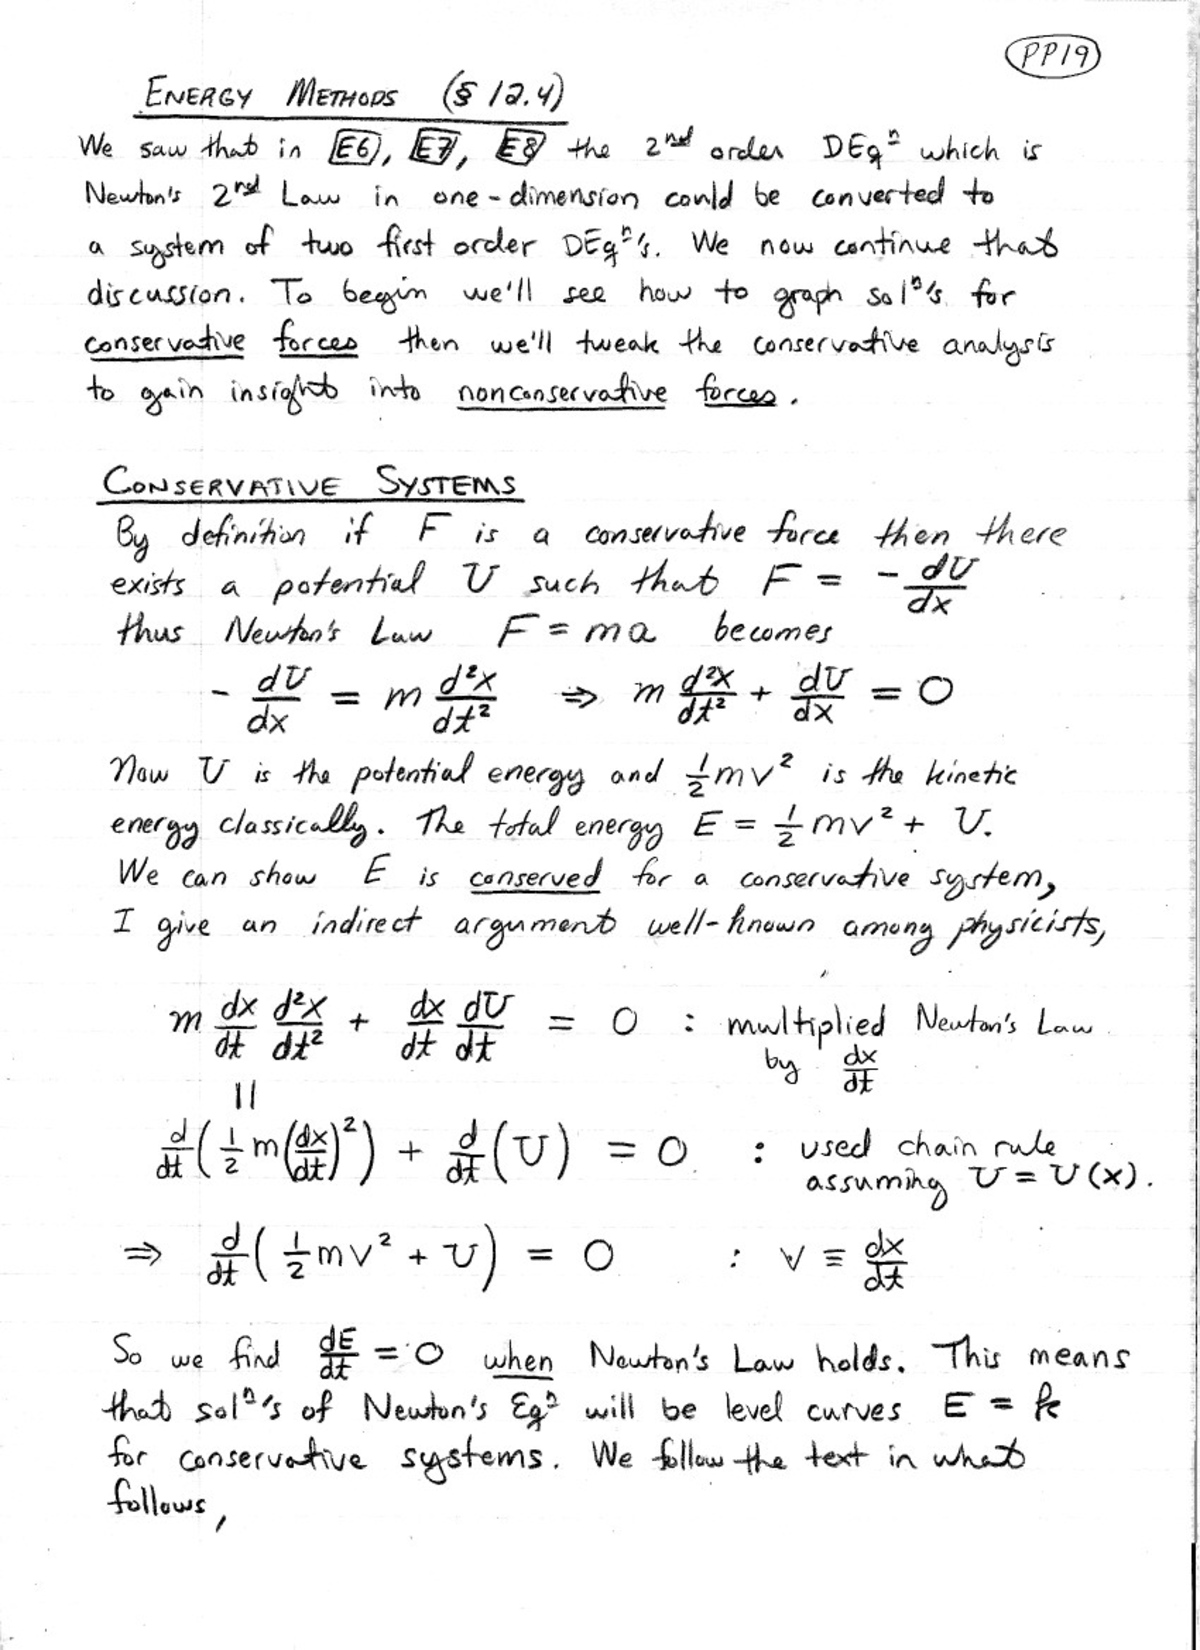 PP19
ENERGY METHODS (§ 12.4)
We saw that in E6, E7, E8 the 2nd order DEqⁿ which is
Newton's 2nd Law in one-dimension could be converted to
a system of two first order DEqⁿ's. We now continue that
discussion. To begin we'll see how to graph solⁿ's for
conservative forces then we'll tweak the conservative analysis
to gain insight into nonconservative forces.
CONSERVATIVE SYSTEMS
By definition if F is a conservative force then there
exists a potential U such that F = - dU/dx
thus Newton's Law F = ma becomes
- dU/dx = m d²x/dt² ⇒ m d²x/dt² + dU/dx = 0
Now U is the potential energy and ½mv² is the kinetic
energy classically. The total energy E = ½mv² + U.
We can show E is conserved for a conservative system,
I give an indirect argument well-known among physicists,
m dx/dt d²x/dt² + dx/dt dU/dt = 0 : multiplied Newton's Law
by dx/dt
||
d/dt(½m(dx/dt)²) + d/dt(U) = 0 : used chain rule
assuming U = U(x).
⇒ d/dt(½mv² + U) = 0 : v ≡ dx/dt
So we find dE/dt = 0 when Newton's Law holds. This means
that solⁿ's of Newton's Eqⁿ will be level curves E = k
for conservative systems. We follow the text in what
follows,